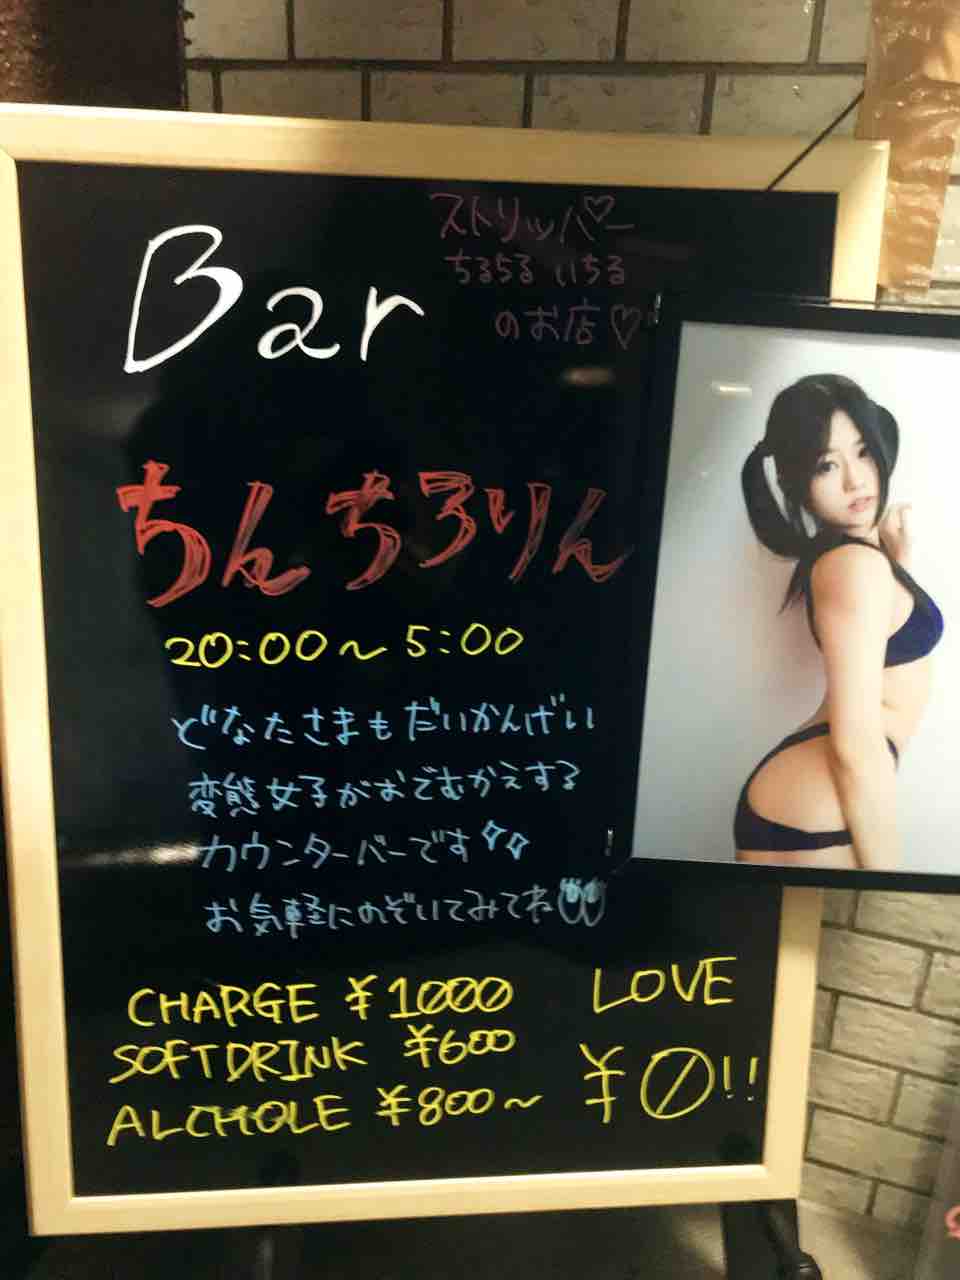 Bar
ストリッパー
ちるちる いちる
のお店♡
ちんちろりん
20:00〜5:00
どなたさまもだいかんげい
変態女子がおでむかえする
カウンターバーです
お気軽にのぞいてみてね
CHARGE ¥1000
SOFTDRINK ¥600
ALCHOLE ¥800〜
LOVE
¥0!!